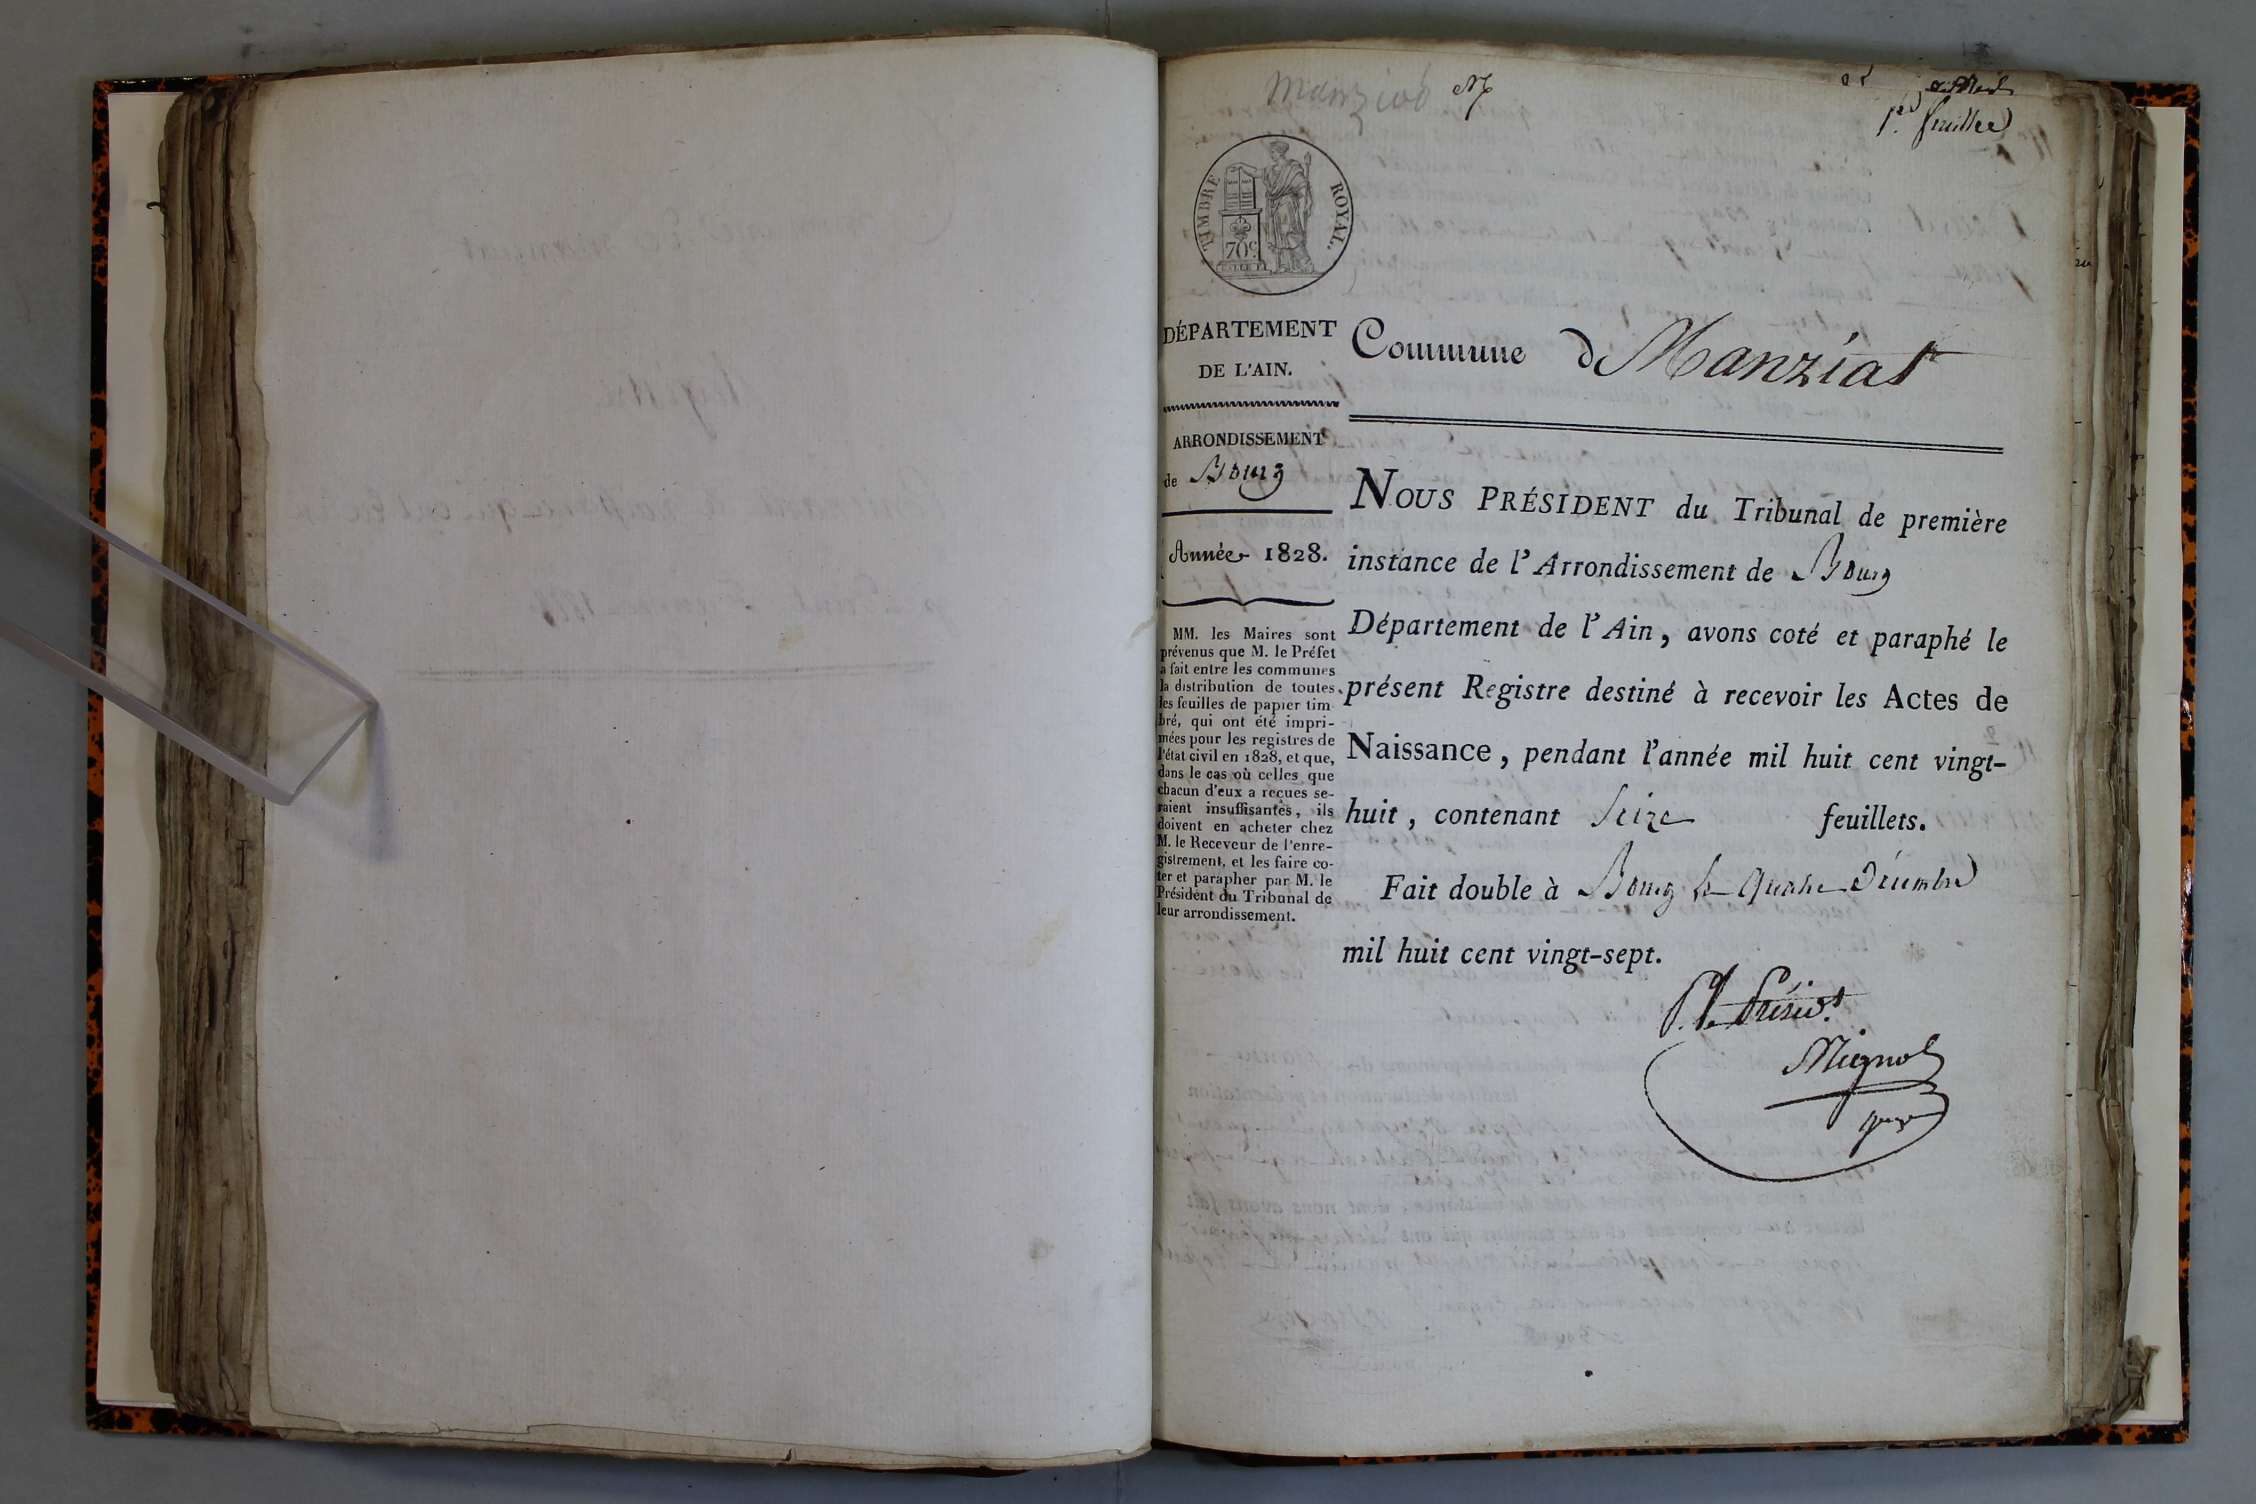 Manziat N
1er feuillet
TIMBRE ROYAL.
70c
DÉPARTEMENT
DE L'AIN.
ARRONDISSEMENT
de Bourg
Année 1828.
MM. les Maires sont
prévenus que M. le Préfet
a fait entre les communes
la distribution de toutes
les feuilles de papier tim-
bré, qui ont été impri-
mées pour les registres de
l'état civil en 1828, et que,
dans le cas où celles que
chacun d'eux a reçues se-
raient insuffisantes, ils
doivent en acheter chez
M. le Receveur de l'enre-
gistrement, et les faire co-
ter et parapher par M. le
Président du Tribunal de
leur arrondissement.
Commune d Manziat
NOUS PRÉSIDENT du Tribunal de première
instance de l'Arrondissement de Bourg
Département de l'Ain, avons coté et paraphé le
présent Registre destiné à recevoir les Actes de
Naissance, pendant l'année mil huit cent vingt-
huit, contenant Seize feuillets.
Fait double à Bourg le quatre Décembre
mil huit cent vingt-sept.
P. le Présidt
Mignot
juge